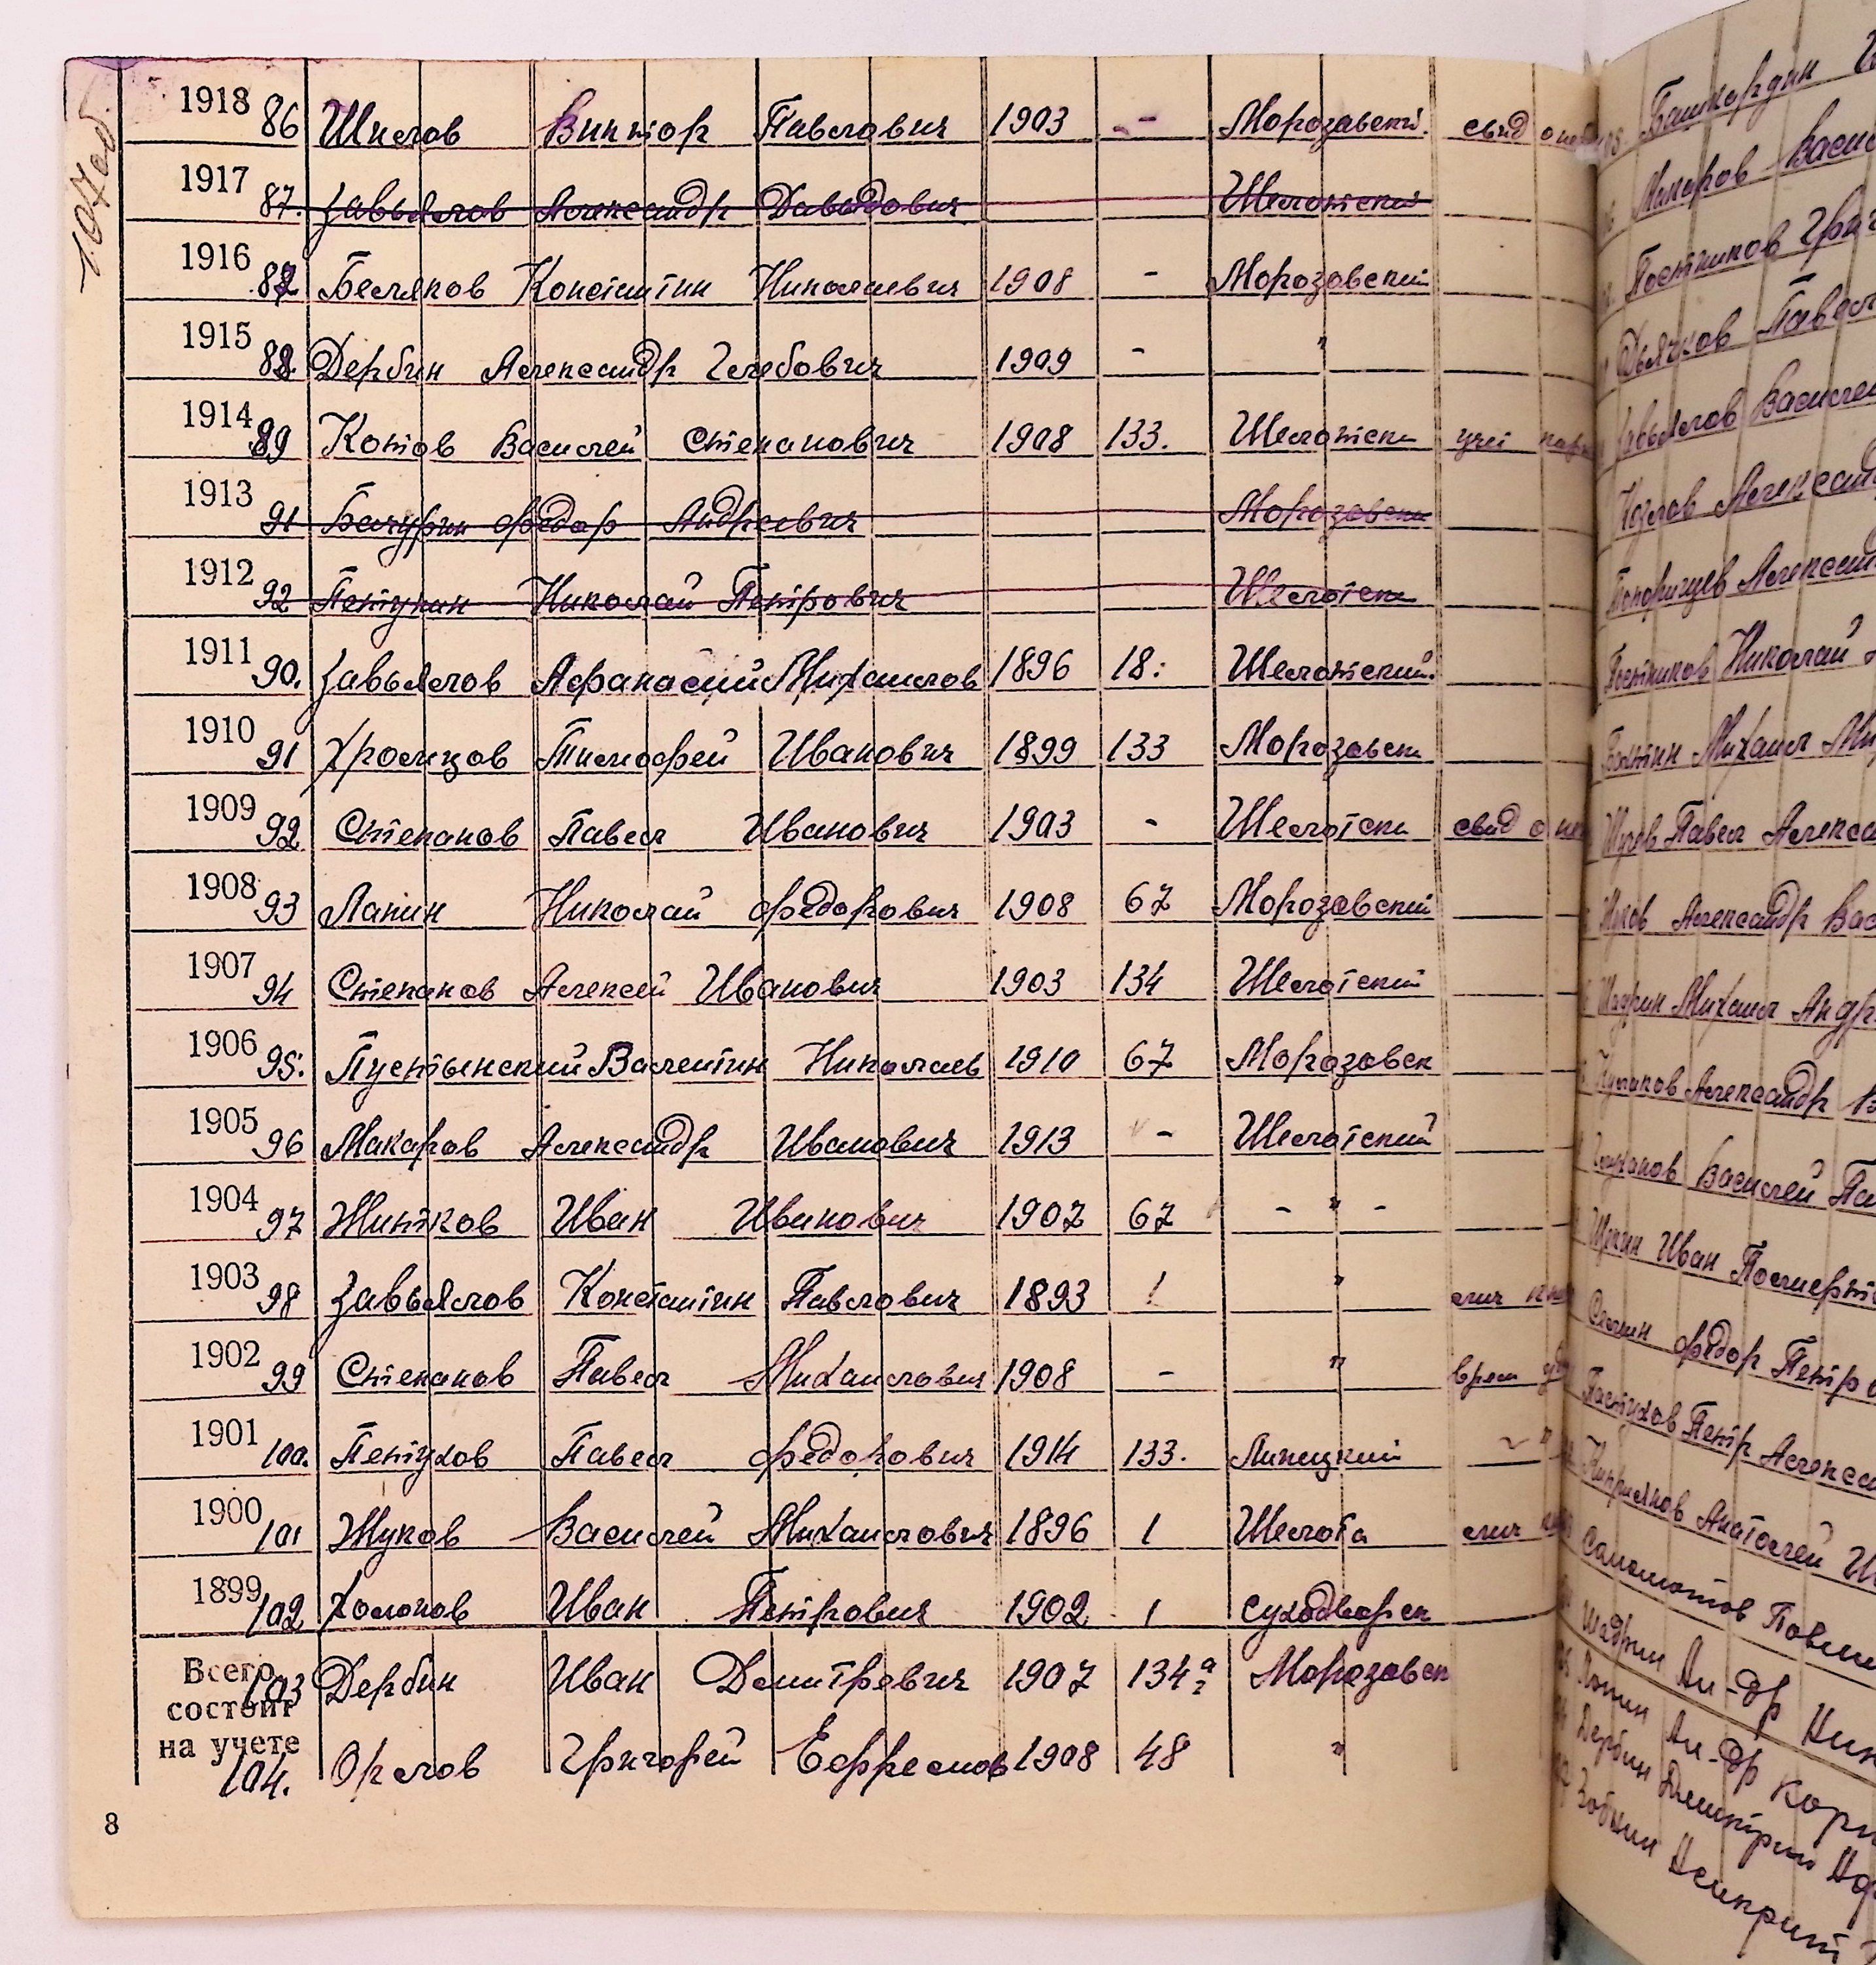 107об.
1918 86 Шилов Виктор Павлович 1903 - Морозовский. свид о
1917 87. Завьялов Александр Давыдович Шелотский
1916 87. Беляков Константин Николаевич 1908 - Морозовский
1915 88. Дербин Александр Глебович 1909 - "
1914 89 Котов Василей Степанович 1908 133. Шелотск учет
1913 91 Бачурин Федор Андреевич Морозовск
1912 92 Петухин Николай Петрович Шелотск
1911 90. Завьялов Афанасий Михаилов 1896 18. Шелотский.
1910 91 Хромцов Тимофей Иванович 1899 133 Морозовск
1909 92 Степанов Павел Иванович 1903 - Шелотск свид о
1908 93 Лапин Николай Федорович 1908 67 Морозовский
1907 94 Степанов Алексей Иванович 1903 134 Шелотский
1906 95. Пустынский Валентин Николаев 1910 67 Морозовск
1905 96 Макаров Александр Иванович 1913 - Шелотский
1904 97 Житков Иван Иванович 1907 67 - " -
1903 98 Завьялов Константин Павлович 1893 1 "
1902 99 Степанов Павел Михаилович 1908 - " врем
1901 100. Петухов Павел Федорович 1914 133. Липецкий
1900 101 Жуков Василей Михаилович 1896 1 Шелота
1899 102 Холопов Иван Петрович 1902 1 Суходворск
Всего состоит на учете
103 Дербин Иван Демитревич 1907 134 Морозовск
104. Орлов Григорей Ефремов 1908 48 "
8
Макаров
Постников
Дьячков Павел
Завьялов Василей
Козлов Александ
Александ
Постников Николай
Михаил
Павел Алекса
Жуков Александр Вас
Шадрин Михаил Андр
Александр
Василей Па
Щукин Иван
Федор Петро
Пастухов Петр Алекса
Анатолей И
Шадрин Ал-др Ник
Лапин Ал-др Корн
Дербин Дмитрий
Зобнин